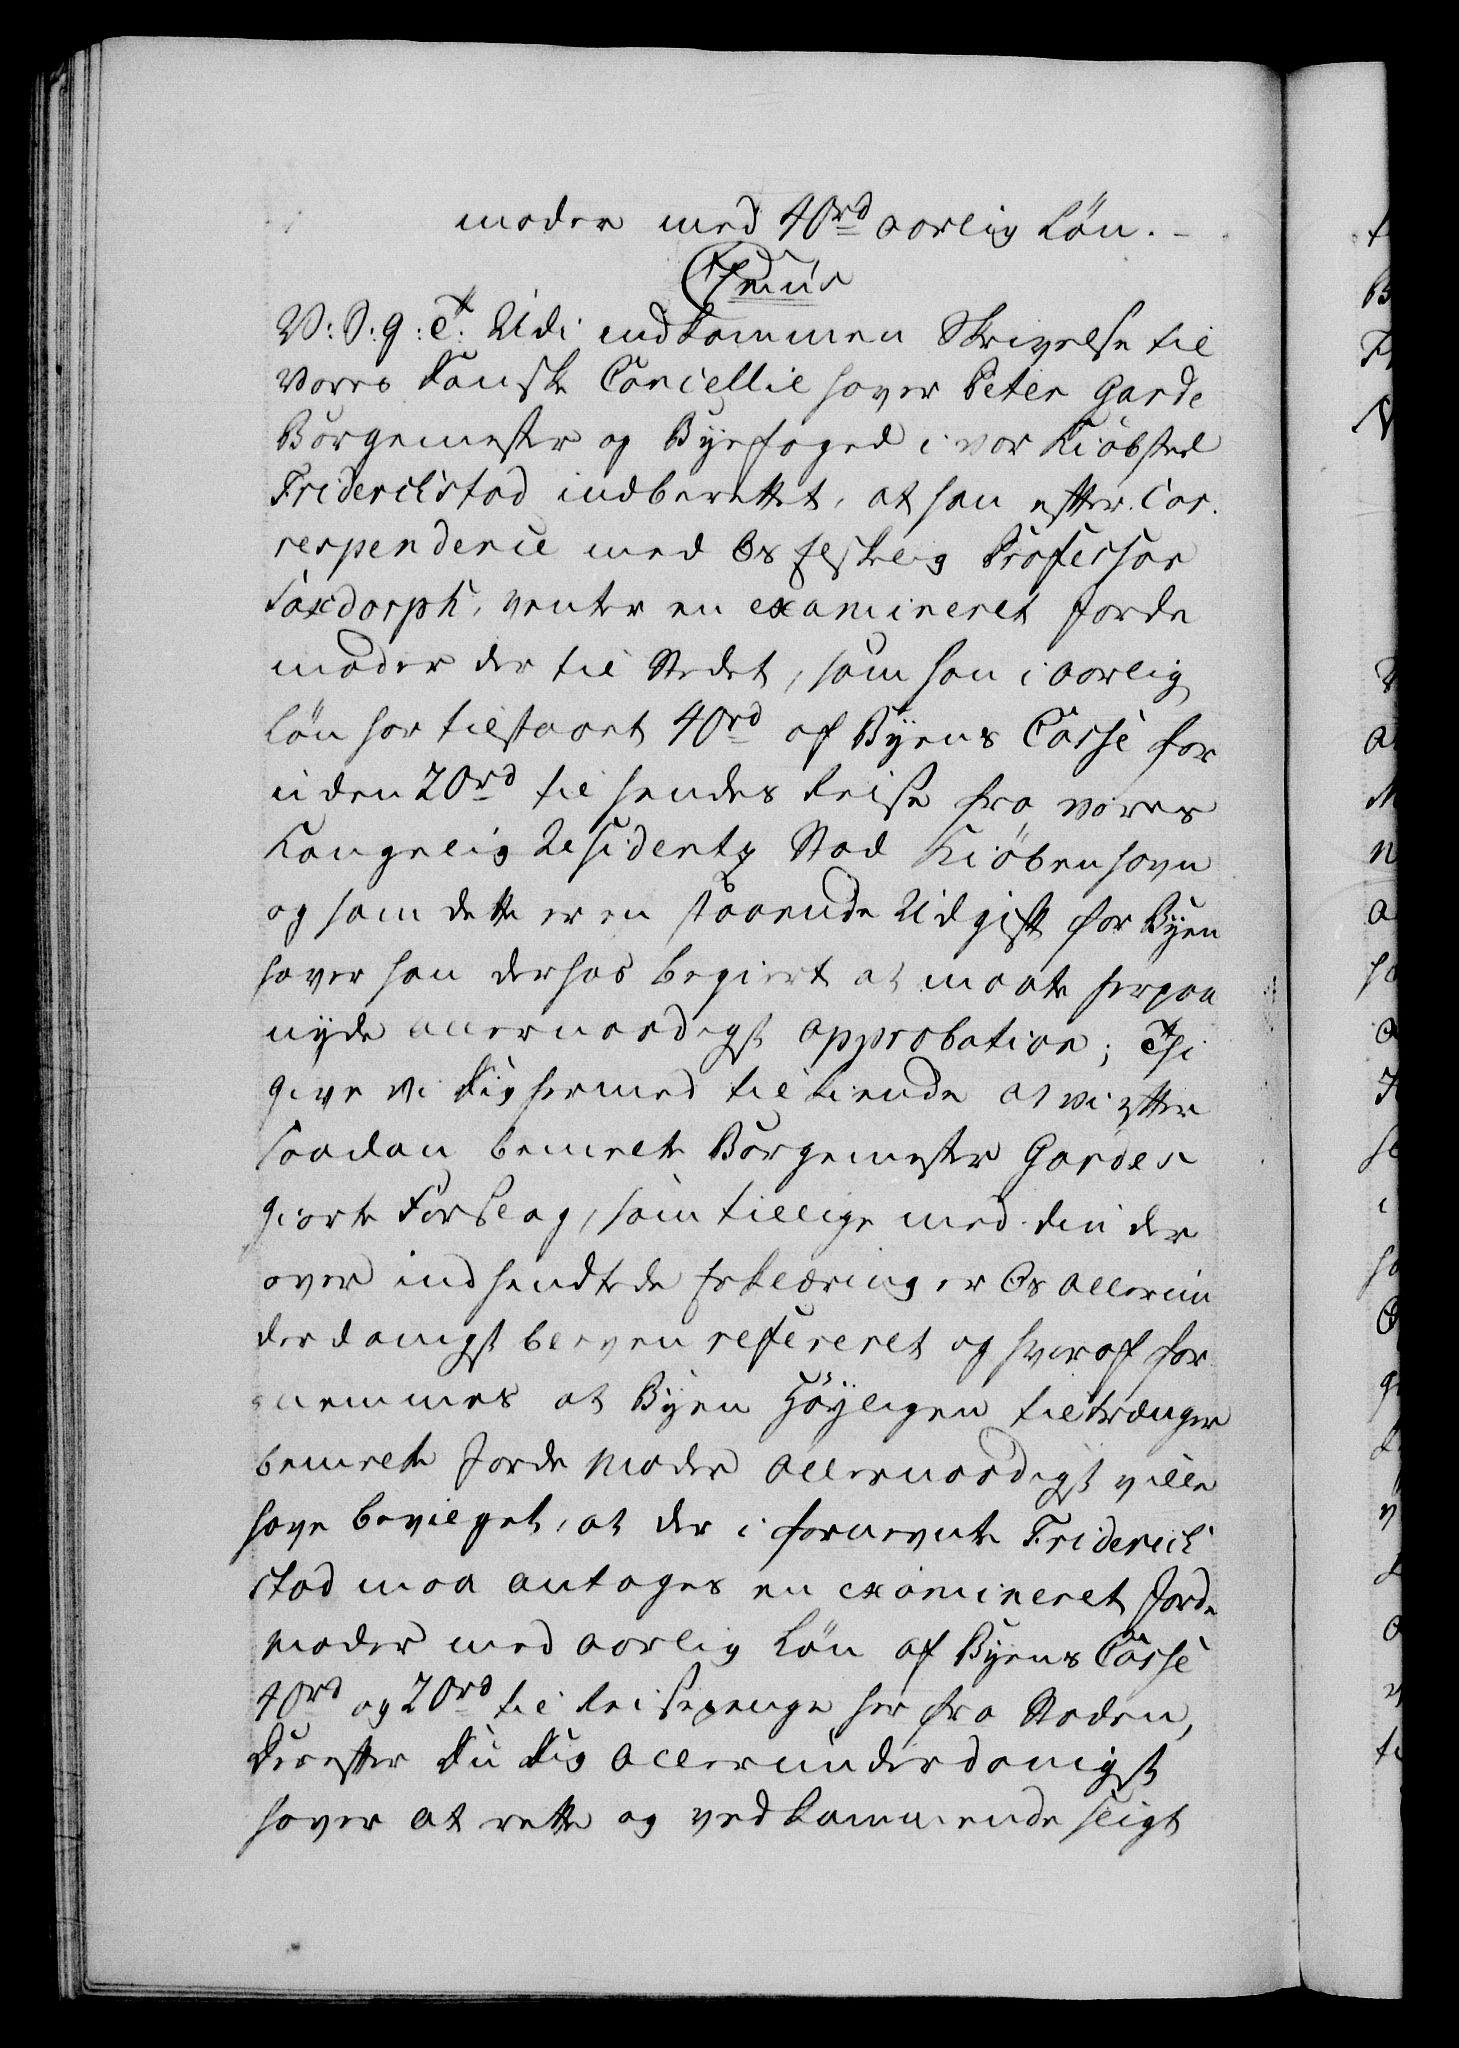 moder med 40rd aarlig Løn. -
V: S: G: T: Udi indkommen Skrivelse til
Vores Danske Cancellie haver Peter Garde
Borgemester og Byefoged i vor Kiøbsted
Friderichstad indberettet, at han efter Cor-
respondence med Os Elskelig Professor
Saxdorph, venter en examineret Jorde
moder der til Stedet, som han i aarlig
Løn har tilstaaet 40rd af Byens Casse for
uden 20rd til hendes Reise fra vores
Kongelig Residentz Stad Kiøbenhavn
og som dette er en staaende Udgift for Byen
haver han derhos begiert at maatte herpaa
nyde allernaadigst approbation; Thi
give Vi Dig hermed tilkiende at vi efter
saadan bemelte Borgemester Gardes
giorte Forslag, som tillige med din der
over indsendte Erklæring er Os allerun
derdanigst bleven refereret og hvoraf for
nemmes at Byen høyligen tiltrænger
bemelte Jorde Moder allernaadigst ville
have bevilget, at der i fornevnte Friderich
stad maa antages en examineret Jorde
Moder med aarlig Løn af Byens Casse
40rd og 20rd til Reisepenge her fra Staden,
Derefter Du Dig allerunderdanigst
haver at rette og vedkommende sligt